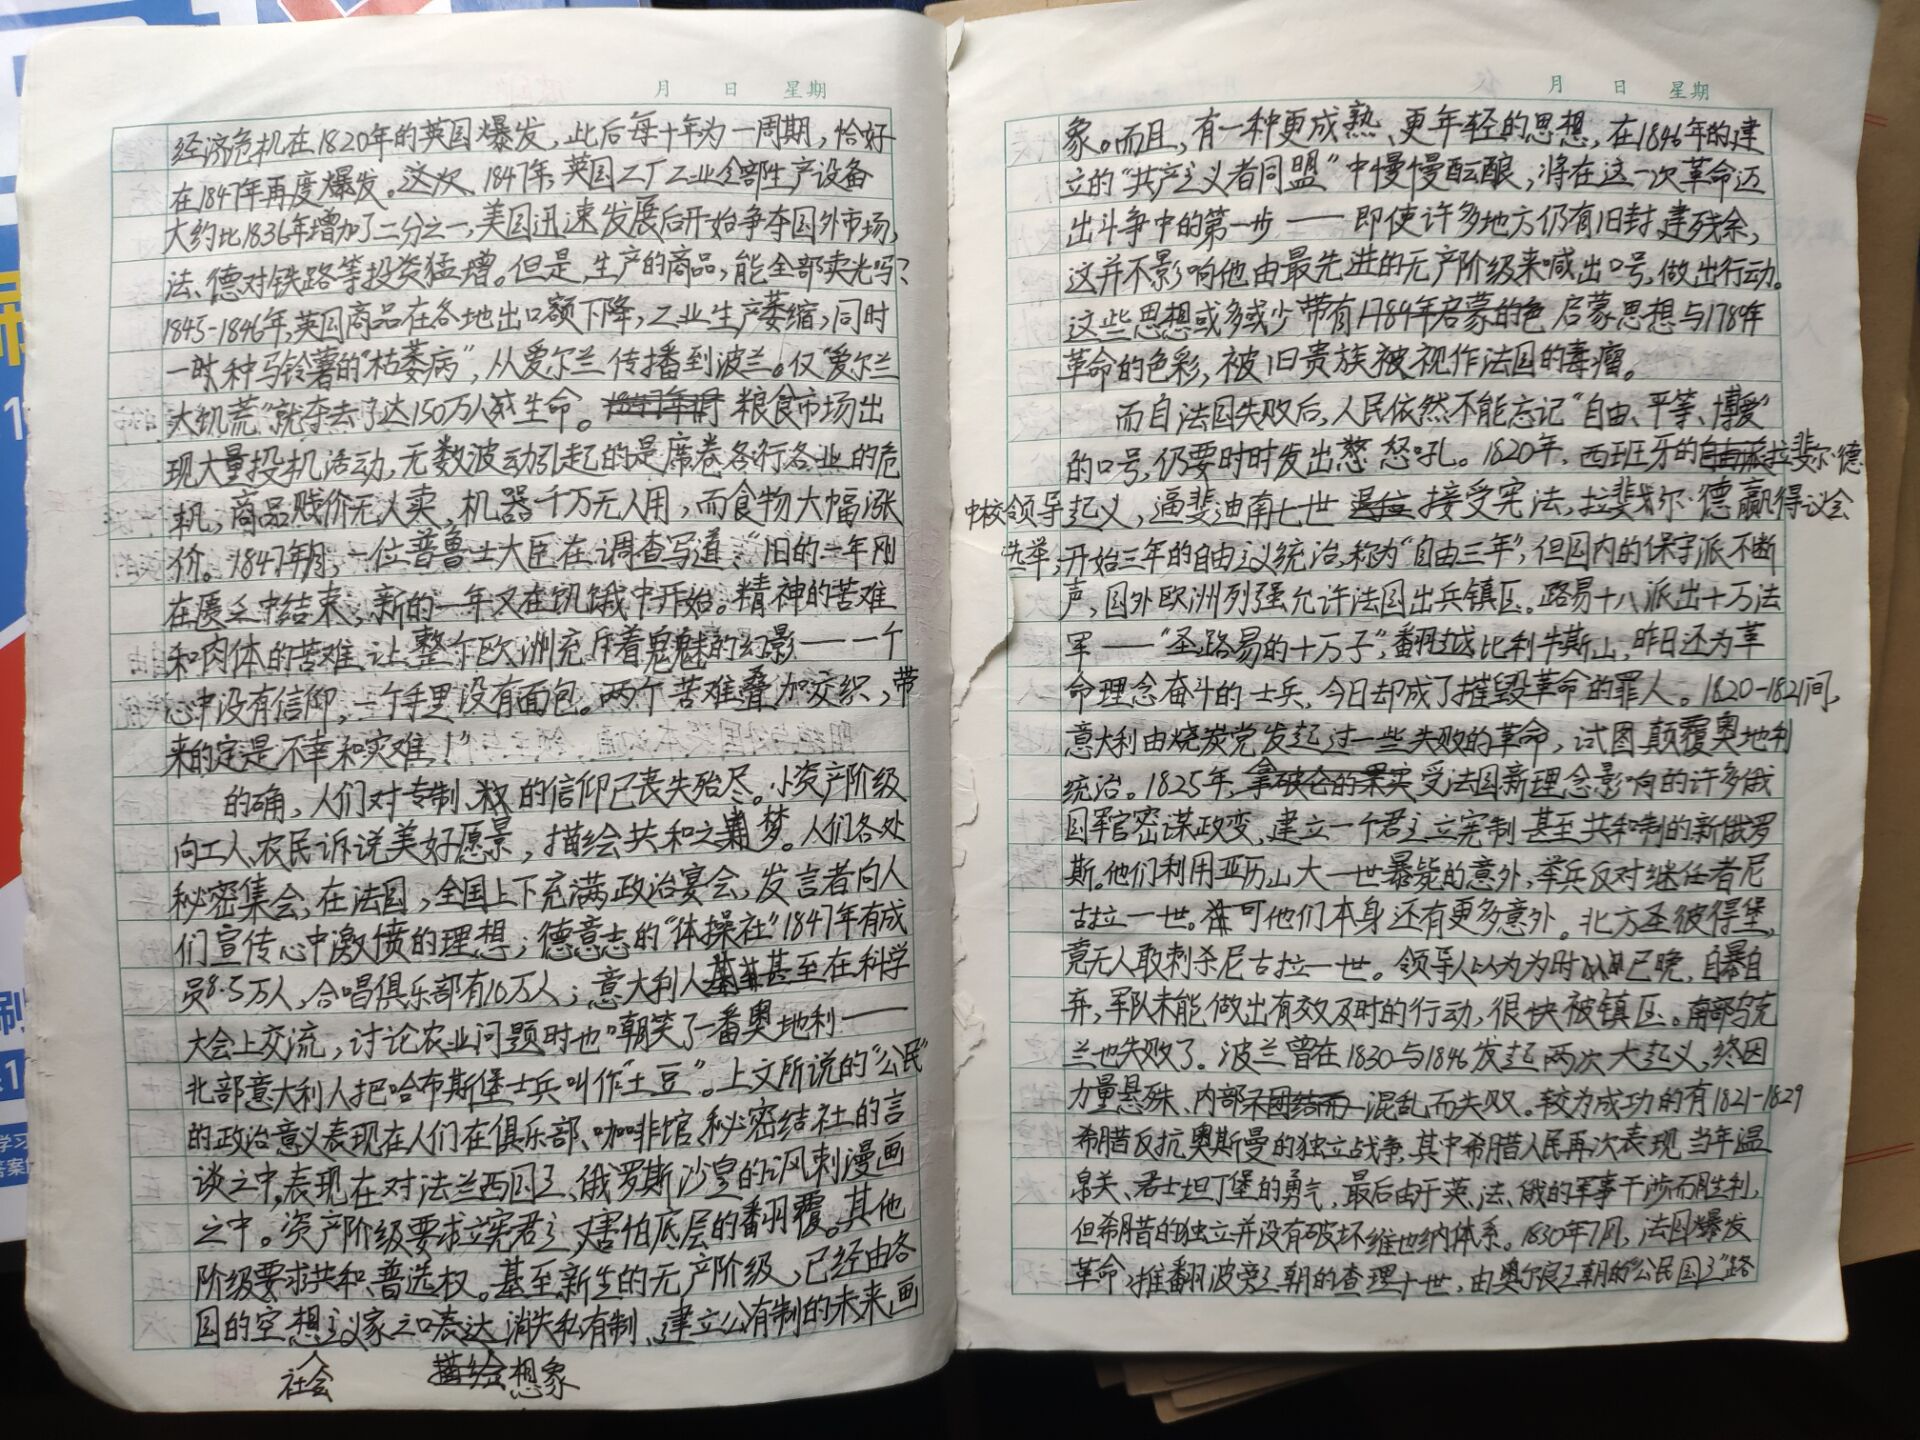 月 日 星期
经济危机在1820年的英国爆发，此后每十年为一周期，恰好
在1847年再度爆发。这次，1847年，英国工厂工业全部生产设备
大约比1836年增加了二分之一，美国迅速发展后开始争夺国外市场，
法、德对铁路等投资猛增。但是，生产的商品，能全部卖光吗？
1845-1846年，英国商品在各地出口额下降，工业生产萎缩，同时
一味种马铃薯的"枯萎病"，从爱尔兰传播到波兰。仅"爱尔兰
大饥荒"就夺去了达150万人生命。粮食市场出
现大量投机活动，无数波动引起的是席卷各行各业的危
机，商品贱价无人卖，机器千万无人用，而食物大幅涨
价。1847年月，一位普鲁士大臣在调查写道："旧的一年刚
在匮乏中结束，新的一年又在饥饿中开始。精神的苦难
和肉体的苦难，让整个欧洲充斥着鬼魅的幻影——一个
心中没有信仰，一个手里没有面包。两个苦难叠加交织，带
来的定是不幸和灾难！"
的确，人们对专制、教权的信仰已丧失殆尽。小资产阶级
向工人、农民诉说美好愿景，描绘共和之梦。人们各处
秘密集会，在法国，全国上下充满政治宴会，发言者向人
们宣传心中激愤的理想；德意志的"体操社"1847年有成
员8.5万人，合唱俱乐部有10万人；意大利人甚至在科学
大会上交流，讨论农业问题时也嘲笑了一番奥地利——
北部意大利人把哈布斯堡士兵叫作"土豆"。上文所说的"公民"
的政治意义表现在人们在俱乐部、咖啡馆、秘密结社的言
谈之中，表现在对法兰西国王、俄罗斯沙皇的讽刺漫画
之中。资产阶级要求立宪君主，又害怕底层的翻覆。其他
阶级要求共和、普选权。甚至新生的无产阶级，已经由各
国的空想社会主义家之口表达消失私有制、建立公有制的未来，画
社会 描绘想象
月 日 星期
象。而且，有一种更成熟、更年轻的思想，在1846年的建
立的"共产主义者同盟"中慢慢酝酿，将在这一次革命迈
出斗争中的第一步——即使许多地方仍有旧封建残余，
这并不影响他由最先进的无产阶级来喊出口号，做出行动。
这些思想或多或少带有1789年启蒙的色 启蒙思想与1789年
革命的色彩，被旧贵族被视作法国的毒瘤。
而自法国失败后，人民依然不能忘记"自由、平等、博爱"
的口号，仍要时时发出怒吼。1820年，西班牙的自由派拉斐尔·德
中校领导起义，逼斐迪南七世退位接受宪法，拉斐尔·德赢得议会
选举，开始三年的自由主义统治，称为"自由三年"，但国内的保守派不断
声，国外欧洲列强允许法国出兵镇压。路易十八派出十万法
军——"圣路易的十万子"，翻越比利牛斯山，昨日还为革
命理念奋斗的士兵，今日却成了摧毁革命的罪人。1820-1821间，
意大利由烧炭党发起过一些失败的革命，试图颠覆奥地利
统治。1825年，拿破仑的果实受法国新理念影响的许多俄
国军官密谋政变，建立一个君主立宪制甚至共和制的新俄罗
斯。他们利用亚历山大一世暴毙的意外，举兵反对继任者尼
古拉一世。可他们本身还有更多意外。北方圣彼得堡，
竟无人敢刺杀尼古拉一世。领导人以为为时已晚，自暴自
弃，军队未能做出有效及时的行动，很快被镇压。南部乌克
兰也失败了。波兰曾在1830与1846发起两次大起义，终因
力量悬殊、内部不团结而混乱而失败。较为成功的有1821-1829
希腊反抗奥斯曼的独立战争，其中希腊人民再次表现当年温
泉关、君士坦丁堡的勇气，最后由于英、法、俄的军事干涉而胜利，
但希腊的独立并没有破坏维也纳体系。1830年7月，法国爆发
革命，推翻波旁王朝的查理十世，由奥尔良王朝的"公民国王"路